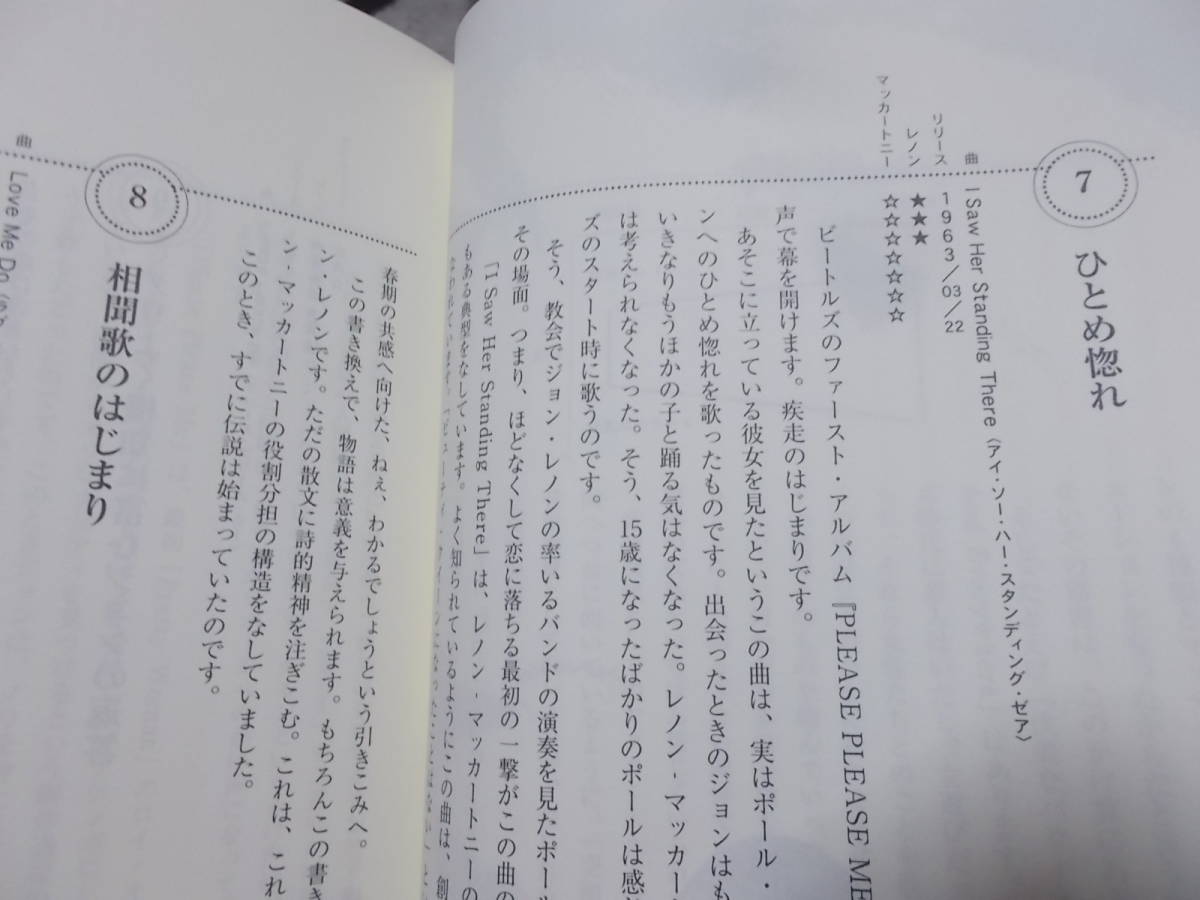 7
ひとめ惚れ
曲 I Saw Her Standing There〈アイ・ソー・ハー・スタンディング・ゼア〉
リリース 1963/03/22
レノン ★★★
マッカートニー ☆☆☆☆☆☆☆
ビートルズのファースト・アルバム『PLEASE PLEASE ME
声で幕を開けます。疾走のはじまりです。
あそこに立っている彼女を見たというこの曲は、実はポール・
ンへのひとめ惚れを歌ったものです。出会ったときのジョンはも
いきなりもうほかの子と踊る気はなくなった。レノン-マッカー
は考えられなくなった。そう、15歳になったばかりのポールは感
ズのスタート時に歌うのです。
そう、教会でジョン・レノンの率いるバンドの演奏を見たポー
その場面。つまり、ほどなくして恋に落ちる最初の一撃がこの曲の
「I Saw Her Standing There」は、レノン-マッカートニーの
もある典型をなしています。よく知られているようにこの曲は、創
春期の共感へ向けた、ねぇ、わかるでしょうという引きこみへ。
この書き換えで、物語は意義を与えられます。もちろんこの書き
ン・レノンです。ただの散文に詩的精神を注ぎこむ。これは、これ
ン-マッカートニーの役割分担の構造をなしていました。
このとき、すでに伝説は始まっていたのです。
8
相聞歌のはじまり
曲 Love Me Do